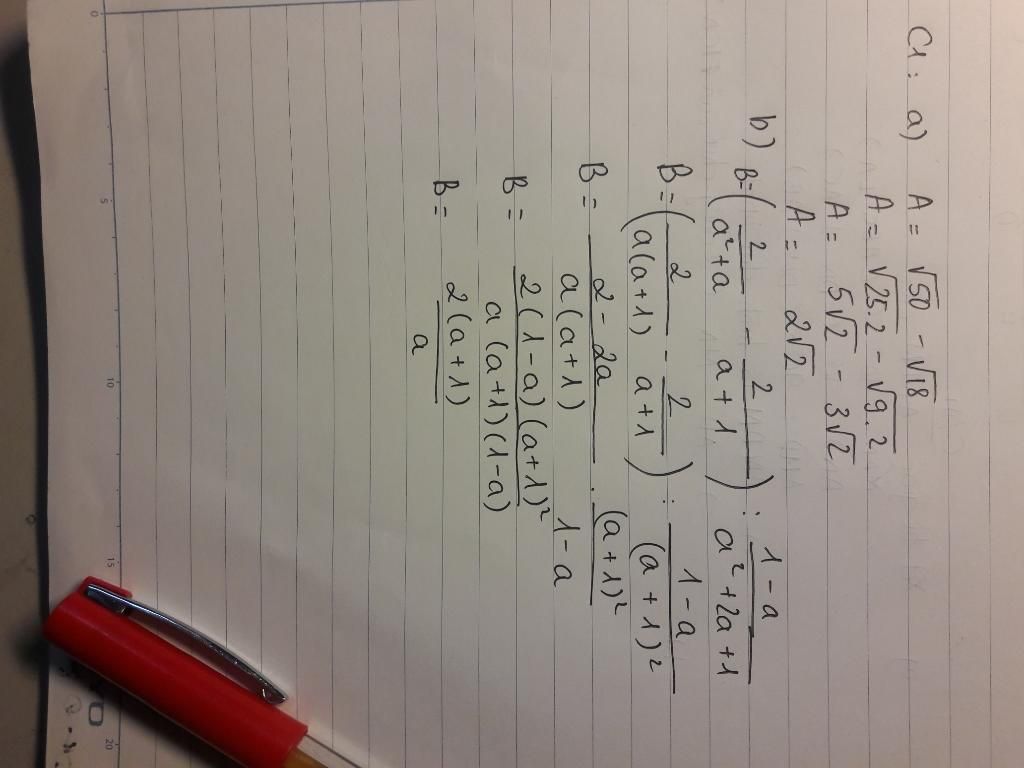 C1: a) A = √50 - √18
A = √25.2 - √9.2
A = 5√2 - 3√2
A = 2√2
b) B = (2/(a²+a) - 2/(a+1)) : (1-a)/(a²+2a+1)
B = (2/(a(a+1)) - 2/(a+1)) : (1-a)/(a+1)²
B = (2-2a)/(a(a+1)) . (a+1)²/(1-a)
B = 2(1-a)(a+1)²/(a(a+1)(1-a))
B = 2(a+1)/a
0
5
10
15
20